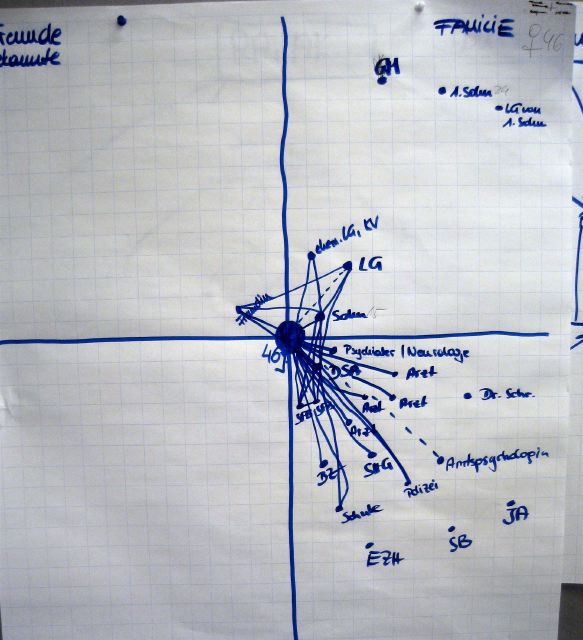 FAMILIE
♀46
GM
1. Sohn
LG von
1. Sohn
ehem. LG, KV
LG
Freundin
Sohn 15
46J
Psychiater / Neurologe
DSA
Arzt
Dr. Schr.
Arzt
Arzt
Arzt
SHG
Amtspsychologin
BZ
Polizei
Schule
JA
SB
EZH